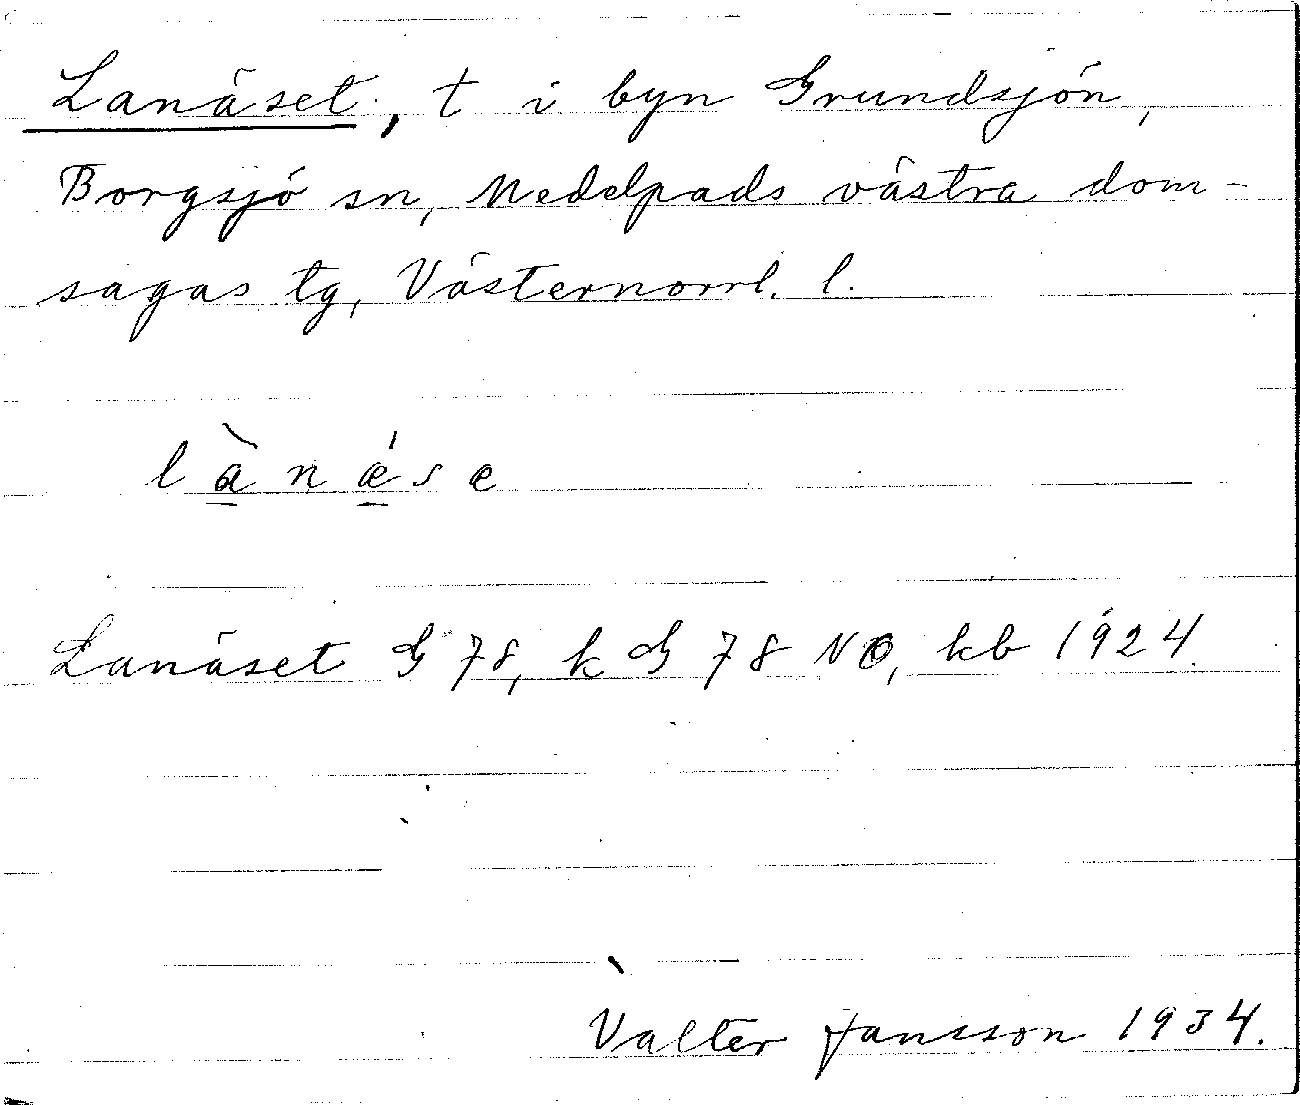 Lanäset, t i byn Grundsjön,
Borgsjö sn, Medelpads västra dom-
sagas tg, Västernorrl. l.
l à n ǽ s e
Lanäset G 78, k G 78 NO, kb 1924.
Valter Jansson 1934.